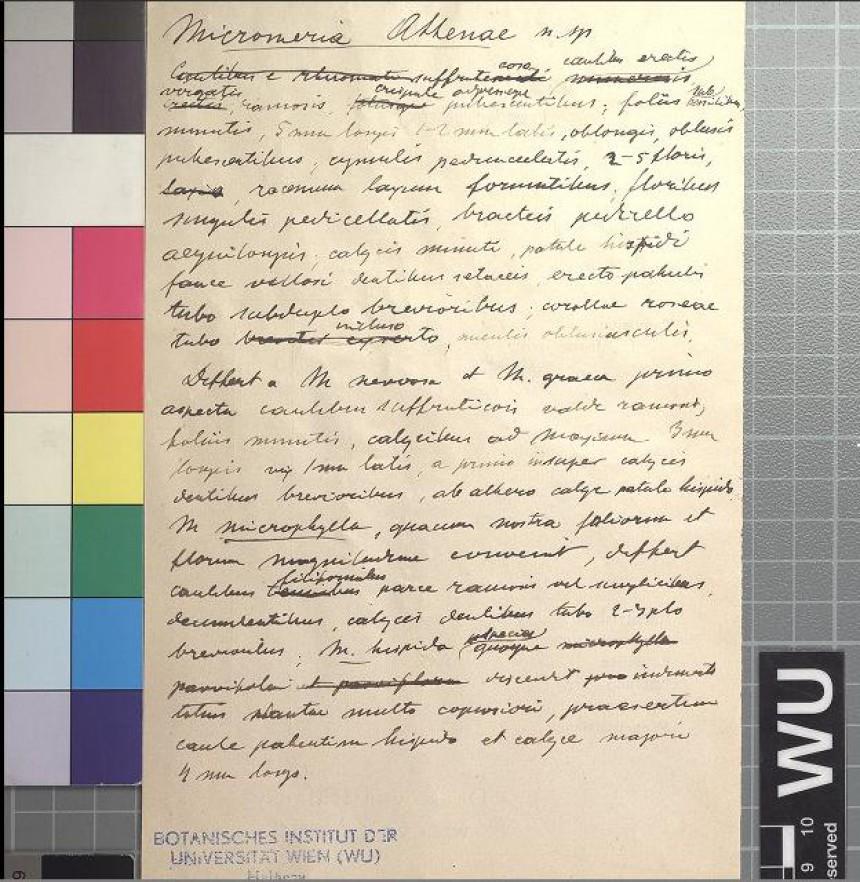 Micromeria Athenae n. sp
Caulibus e rhizomate suffruticoso caulibus erectis
virgatis ramosis, crispule adpresseque pubescentibus; foliis sub sessilibus,
minutis, 5 mm longis 1-2 mm latis, oblongis, obtusis
pubescentibus; cymulis pedunculatis, 2-5 floris,
laxis, racemum laxum formantibus; floribus
singulis pedicellatis, bracteis pedicello
aequilongis; calycis minuti, patule hispidi
fauce villosi dentibus setaceis, erecto-patulis
tubo subduplo brevioribus; corollae roseae
tubo incluso
Differt a M nervosa et M. graeca primo
aspectu caulibus suffruticosis valde ramosis,
foliis minutis, calycibus ad maximum 3 mm
longis vix 1 mm latis, a primo insuper calycis
dentibus brevioribus, ab altero calyce patule hispido.
M microphylla, quacum nostra foliorum et
florum magnitudine convenit, differt
caulibus filiformibus parce ramosis vel simplicibus,
decumbentibus, calycis dentibus tubo 2-3plo
brevioribus; M. hispida quoque microphylla
parvifolia et parviflora discedit indumento
totius plantae multo copiosiori, praesertim
caule patentim hispido et calyce majori
4 mm longo.
BOTANISCHES INSTITUT DER
UNIVERSITÄT WIEN (WU)
WU
9 10
served
9